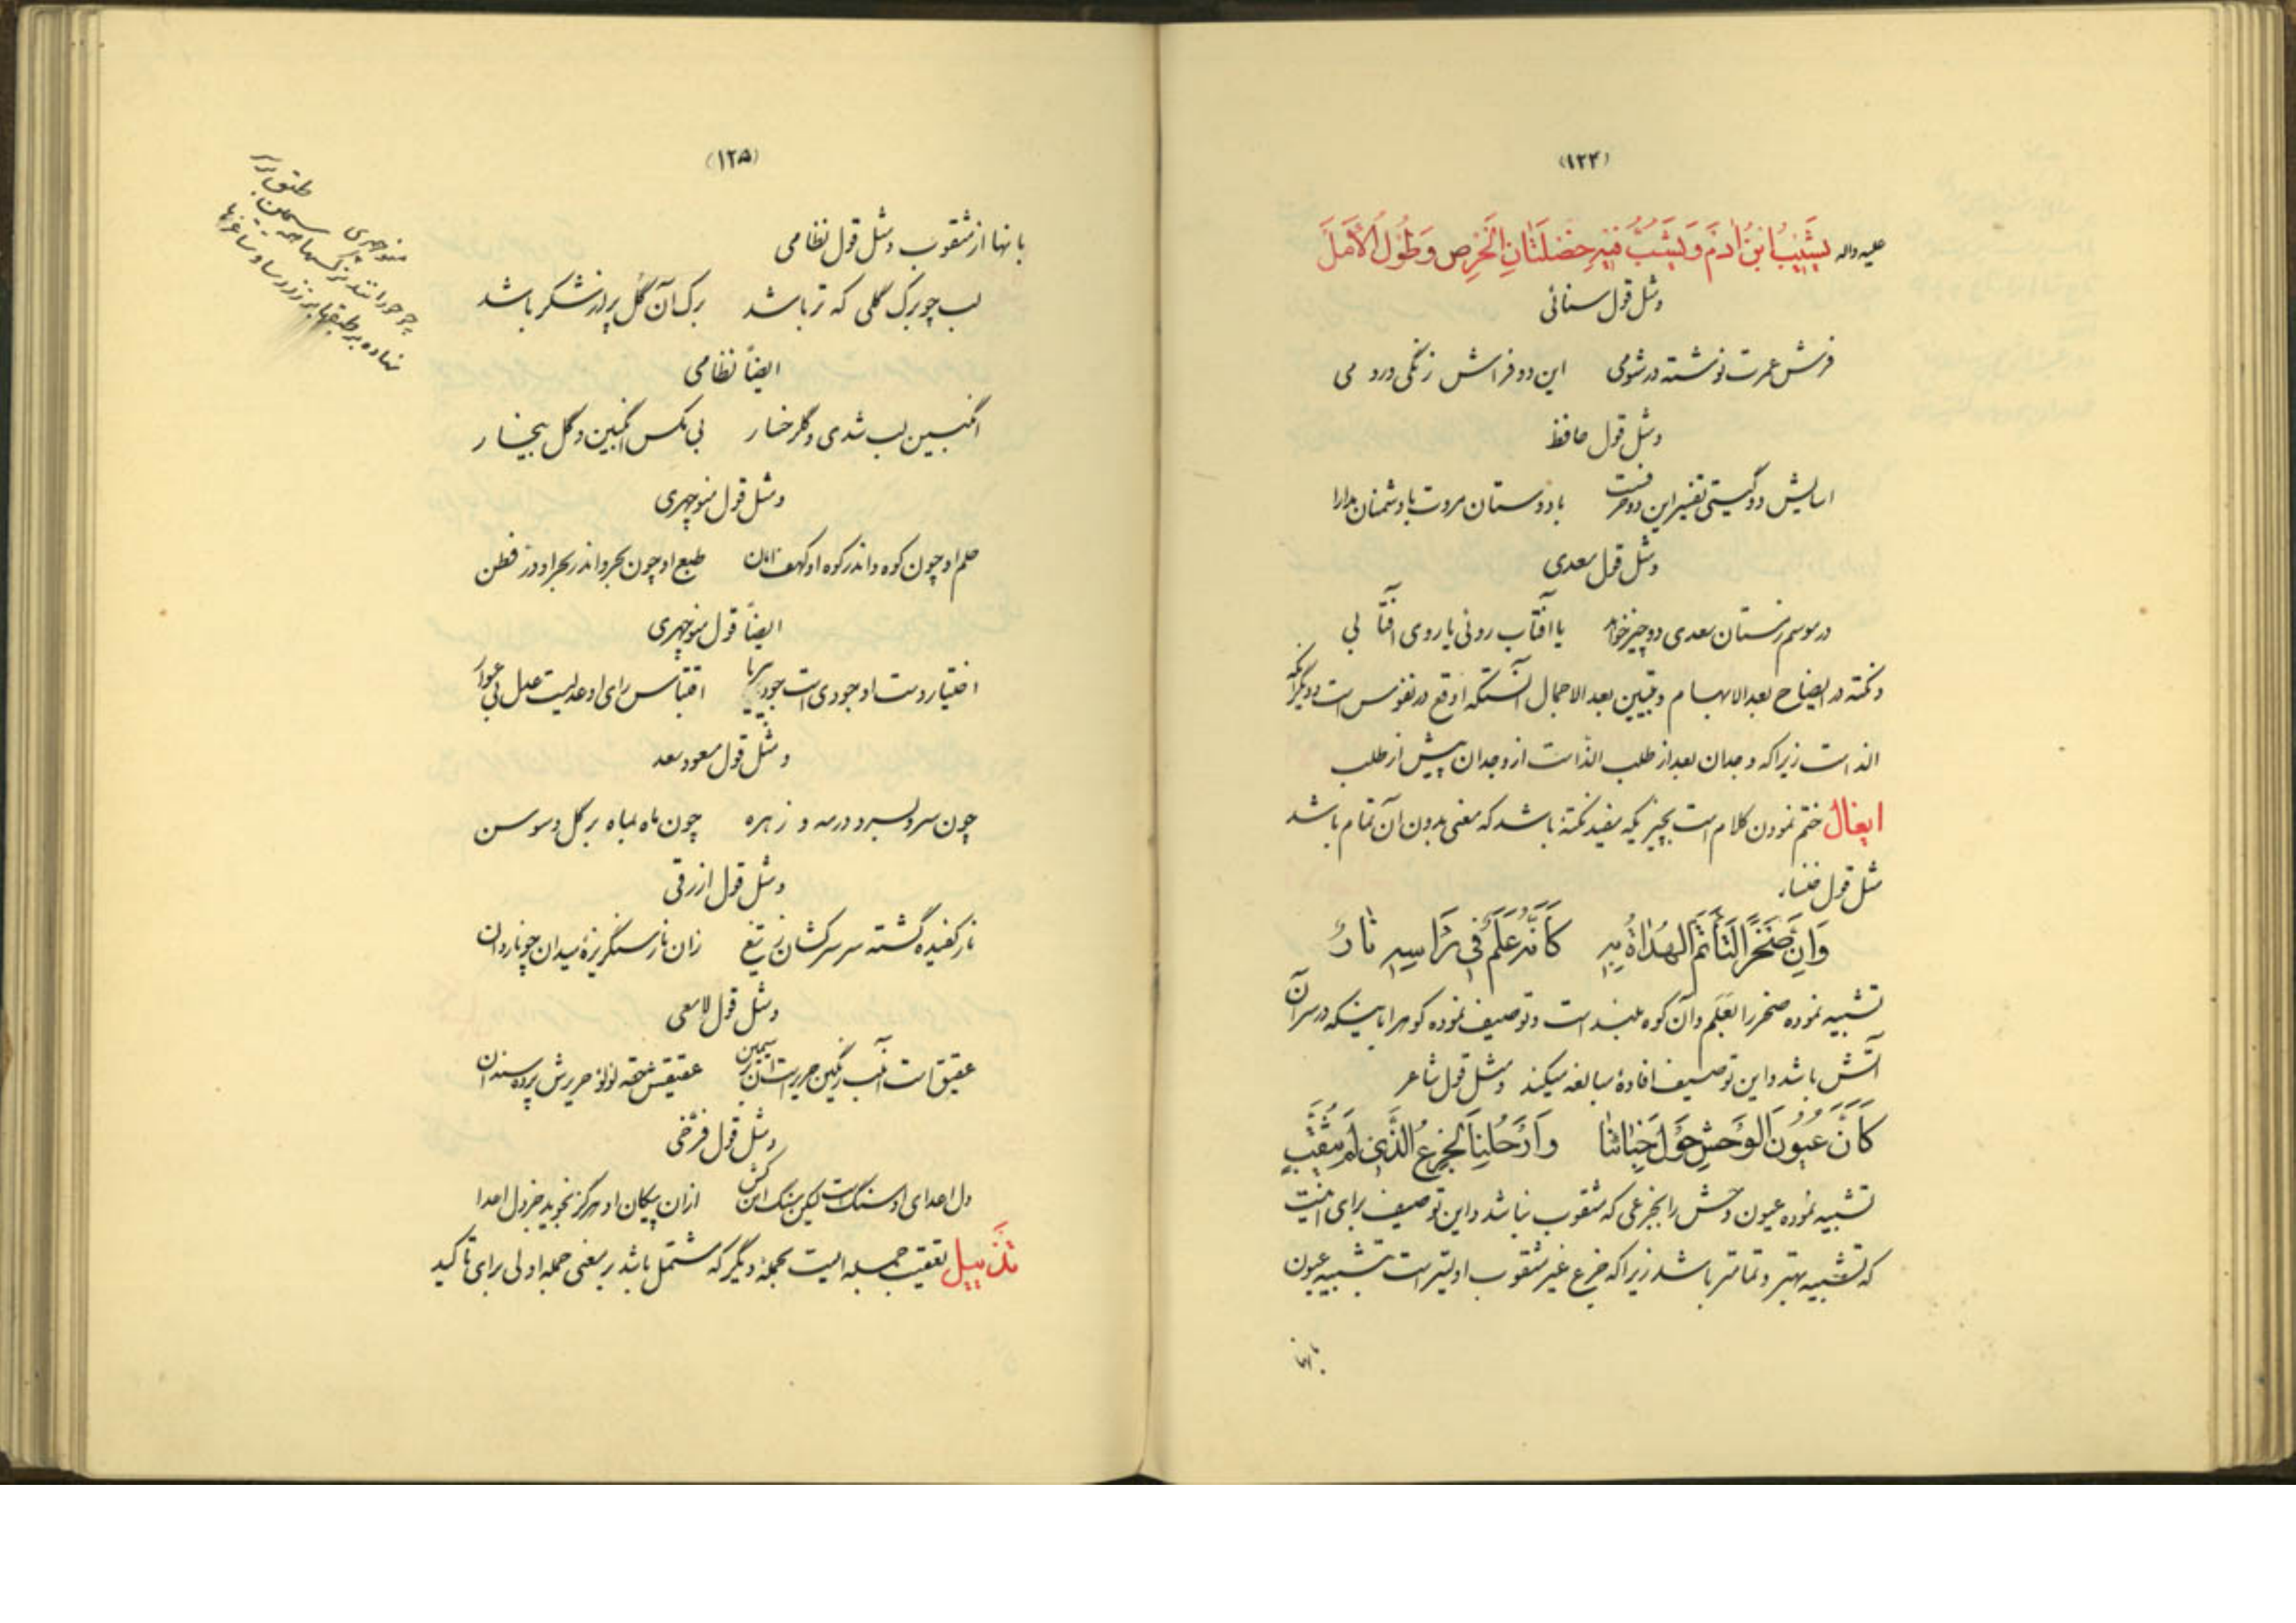 (۱۲۴)
علیه واله یَشیبُ ابنُ ادَمَ وَ یَشِبُّ فیهِ خِصْلَتانِ الحَرِص وَ طُولُ الاَمَل
ومثل قول سنائی
فرش عمرت نوشته در شومی این دو فراش زنگی و رومی
ومثل قول حافظ
اسایش دو گیتی تفسیر این دو حرفست با دوستان مروت با دشمنان مدارا
ومثل قول سعدی
در موسم زمستان سعدی دو چیز خواهد یا آفتاب روئی یا روی آفتابی
ونکته در ایضاح بعد الابهام وتبیین بعد الاجمال آنستکه اوقع در نفوس است و دیگر آنکه
الذ است زیرا که وجدان بعد از طلب الذ است از وجدان پیش از طلب
ایغال ختم نمودن کلام است بچیزیکه مفید نکتهٔ باشد که معنی بدون آن تمام باشد
مثل قول خنساء
وَاِنَّ صَخْرًا لَتَأتَمُّ الهُداةُ بِهِ کَاَنَّهُ عَلَمٌ فی رَاسِهِ نارُ
تشبیه نموده صخر را بعَلَم وآن کوه بلند است وتوصیف نموده کوه را باینکه در سر آن
آتش باشد واین توصیف افادهٔ مبالغه میکند ومثل قول شاعر
کَاَنَّ عُیُونَ الوَحشِ حَوْلَ خِبائنا وَاَرْحُلِنا الجَزعُ الَّذی لَم یُثَقَّبِ
تشبیه نموده عیون وحش را بجزعی که مثقوب نباشد واین توصیف برای اینست
که تشبیه بهتر و تمامتر باشد زیرا که جزع غیر مثقوب اولیتر است تشبیه عیون
بانها
(۱۲۵)
بانها از مثقوب ومثل قول نظامی
لب چو برک گلی که تر باشد برک آن گل پر از شکر باشد
ایضاً نظامی
انگبین لب شدی و گلرخسار بی مکس انگبین و گل بیخار
ومثل قول منوچهری
حلم او چون کوه و اندر کوه او کهف امان طبع او چون بحر و اندر بحر او در فطن
ایضاً قول منوچهری
اختیار دست او جودی است جود بی ریا اقتباس رای او عدلیست عدل بی عوار
ومثل قول مسعود سعد
چون سرو بسرو در مه و زهره چون ماه بماه بر گل و سوسن
ومثل قول ازرقی
نار کفیده گشته سر سرکشان ز تیغ زان نار سنگریزهٔ میدان چو ناردان
ومثل قول لامعی
عقیق است آن لب رنگین حریر است آن بر سیمین عقیقش حقه لؤلؤ حریرش پرده سندان
ومثل قول فرخی
دل اعدای او سنگ است لیکن سنگ آتش کش ازان پیکان او هرگز نجوید جز دل اعدا
تَذییل تعقیب جمله ایست بجملهٔ دیگر که مشتمل باشد بر معنی جمله اولی برای تاکید
منوچهری
نهاده بر طبقها بر ز زر ساو ساغرها